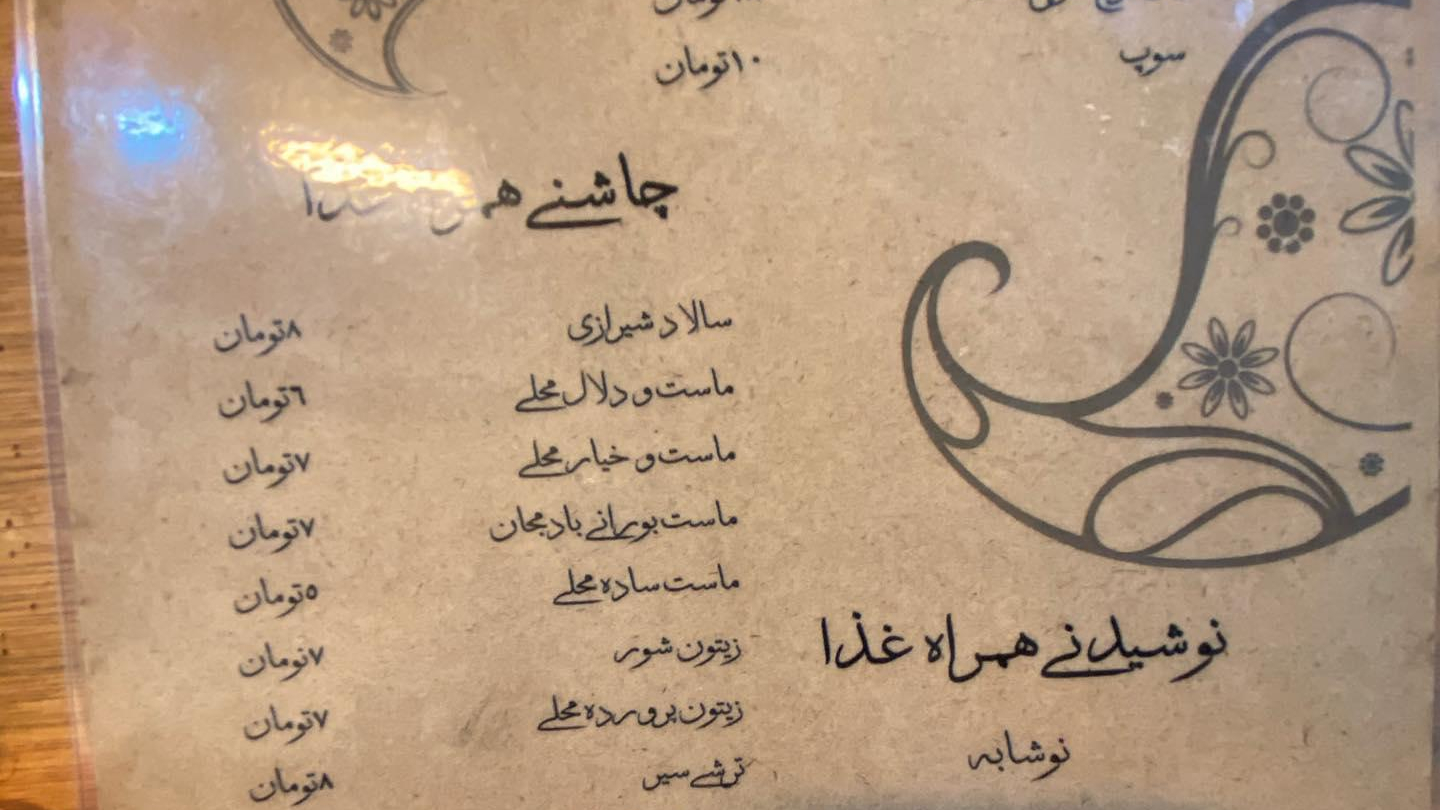 سوپ ۱۰تومان
چاشنی همراه غذا
سالاد شیرازی ۸تومان
ماست و دلال محلی ۶تومان
ماست و خیار محلی ۷تومان
ماست بورانی بادمجان ۷تومان
ماست ساده محلی ۵تومان
زیتون شور ۷تومان
زیتون پرورده محلی ۷تومان
ترشی سیر ۸تومان
نوشیدنی همراه غذا
نوشابه